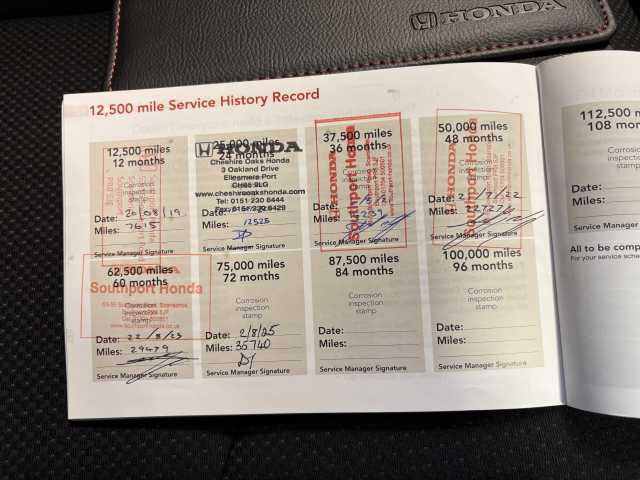 HONDA
12,500 mile Service History Record
12,500 miles
12 months
Corrosion
inspection
stamp
Date: 20/08/19
Miles: 7615
Service Manager Signature
25,000 miles
24 months
HONDA
Cheshire Oaks Honda
3 Oakland Drive
Ellesmere Port
CH65 9LG
www.cheshireoakshonda.com
Tel: 0151 230 8444
Date:
Miles: 12525
Service Manager Signature
37,500 miles
36 months
HONDA
Southport Honda
Date:
Miles:
Service Manager Signature
50,000 miles
48 months
HONDA
Southport Honda
Date:
Miles:
Service Manager Signature
112,500 m
108 mon
Corrosion
inspection
stamp
Date:
Miles:
Service Manager
All to be comp
For your service sche
62,500 miles
60 months
Southport Honda
Corrosion
inspection
stamp
Date: 22/8/23
Miles: 29479
Service Manager Signature
75,000 miles
72 months
Corrosion
inspection
stamp
Date: 2/8/25
Miles: 35740
Service Manager Signature
87,500 miles
84 months
Corrosion
inspection
stamp
Date:
Miles:
Service Manager Signature
100,000 miles
96 months
Corrosion
inspection
stamp
Date:
Miles:
Service Manager Signature